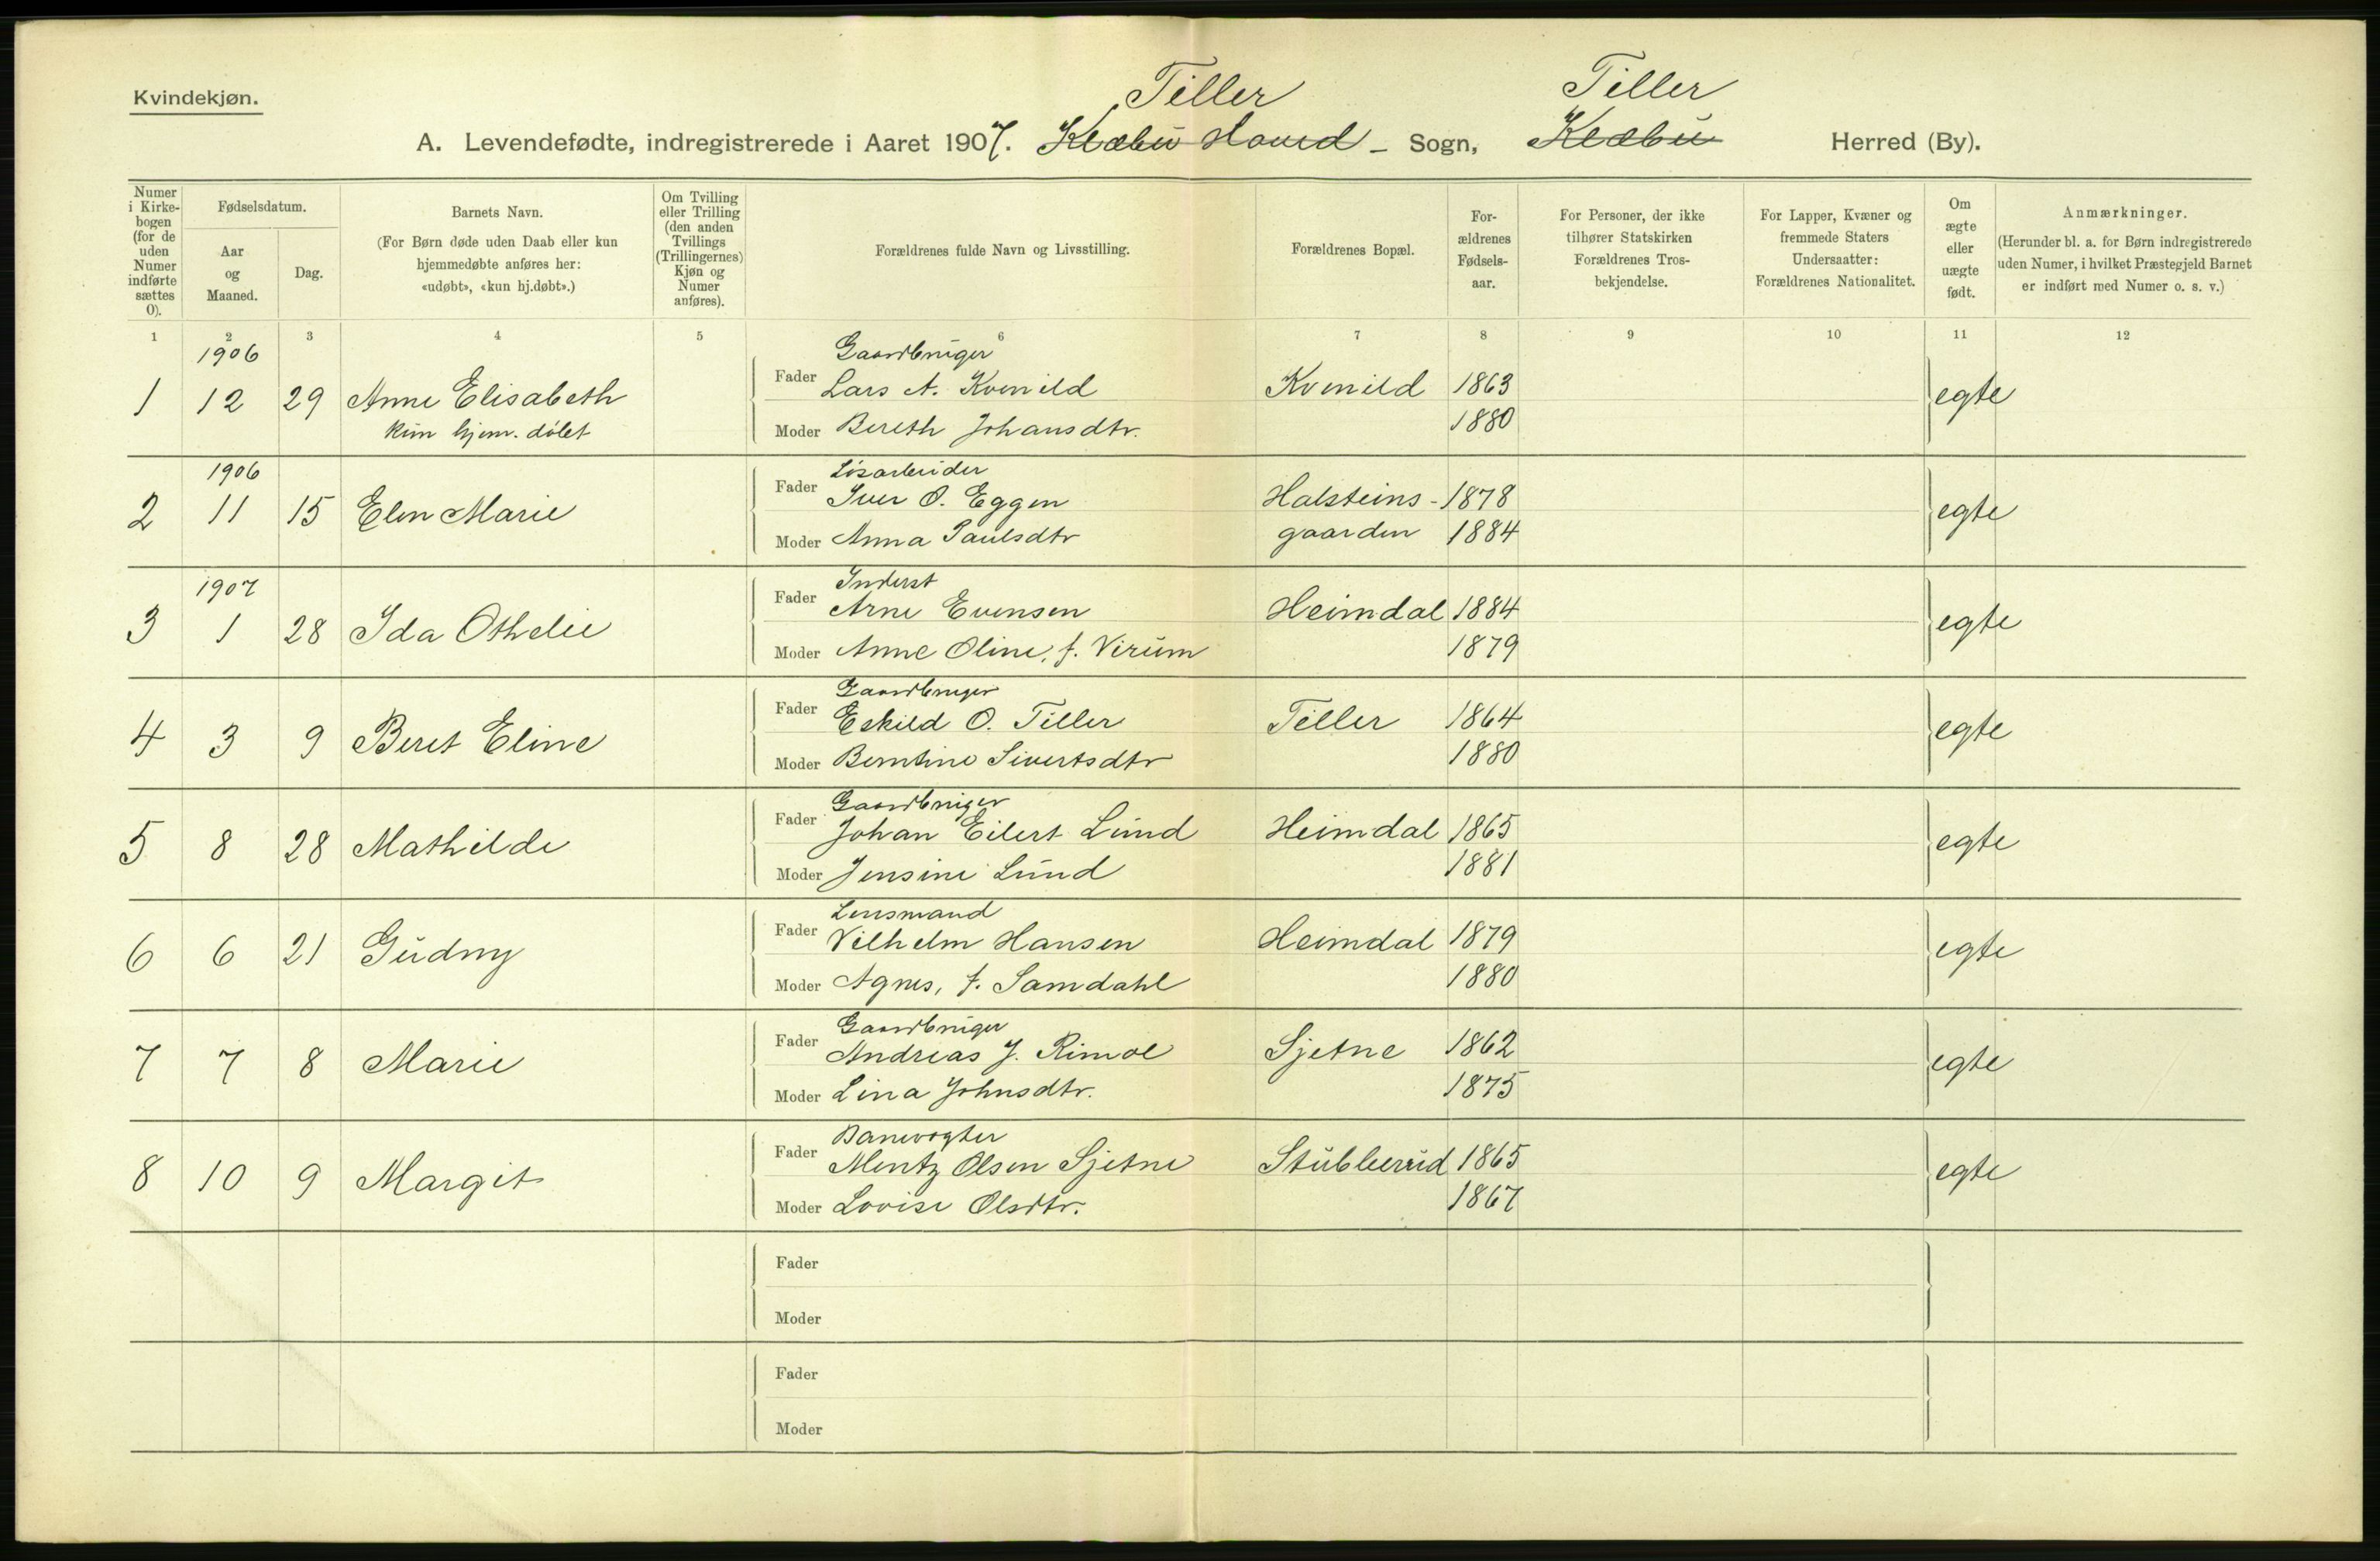 Kvindekjøn.
Tiller Tiller
A. Levendefødte, indregistrerede i Aaret 1907. Klæbu Hoved- Sogn, Klæbu Herred (By).
Numer i Kirke-bogen (for de uden Numer indførte sættes 0).
Fødselsdatum.
Aar og Maaned.
Dag.
Barnets Navn.
(For Børn døde uden Daab eller kun
hjemmedøbte anføres her:
«udøbt», «kun hj.døbt».)
Om Tvilling
eller Trilling
(den anden
Tvillings
(Trillingernes)
Kjøn og
Numer
anføres).
Forældrenes fulde Navn og Livsstilling.
Forældrenes Bopæl.
For-
ældrenes
Fødsels-
aar.
For Personer, der ikke
tilhører Statskirken
Forældrenes Tros-
bekjendelse.
For Lapper, Kvæner og
fremmede Staters
Undersaatter:
Forældrenes Nationalitet.
Om
ægte
eller
uægte
født.
Anmærkninger.
(Herunder bl. a. for Børn indregistrerede
uden Numer, i hvilket Præstegjeld Barnet
er indført med Numer o. s. v.)
1 2 3 4 5 6 7 8 9 10 11 12
1906 Gaardbruger
1 12 29 Anne Elisabeth Fader Lars A. Kvenild Kvenild 1863 egte
kun hjem. døbt Moder Bereth Johansdtr. 1880
1906 Løsarbeider
2 11 15 Elen Marie Fader Iver O. Eggen Halsteins- 1878 egte
Moder Anna Paulsdtr gaarden 1884
1907 Inderst
3 1 28 Ida Othelie Fader Arne Evensen Heimdal 1884 egte
Moder Anne Oline, f. Virum 1879
Gaardbruger
4 3 9 Beret Eline Fader Eskild O. Tiller Tiller 1864 egte
Moder Berntine Sivertsdtr 1880
Gaardbruger
5 8 28 Mathilde Fader Johan Eilert Lund Heimdal 1865 egte
Moder Jensine Lund 1881
Lensmand
6 6 21 Gudny Fader Vilhelm Hansen Heimdal 1879 egte
Moder Agnes, f. Samdahl 1880
Gaardbruger
7 7 8 Marie Fader Andreas J. Rimol Sjetne 1862 egte
Moder Lina Johnsdtr. 1875
Banevogter
8 10 9 Margit Fader Mentz Olsen Sjetne Stubberud 1865 egte
Moder Lovise Olsdtr. 1867
Fader
Moder
Fader
Moder